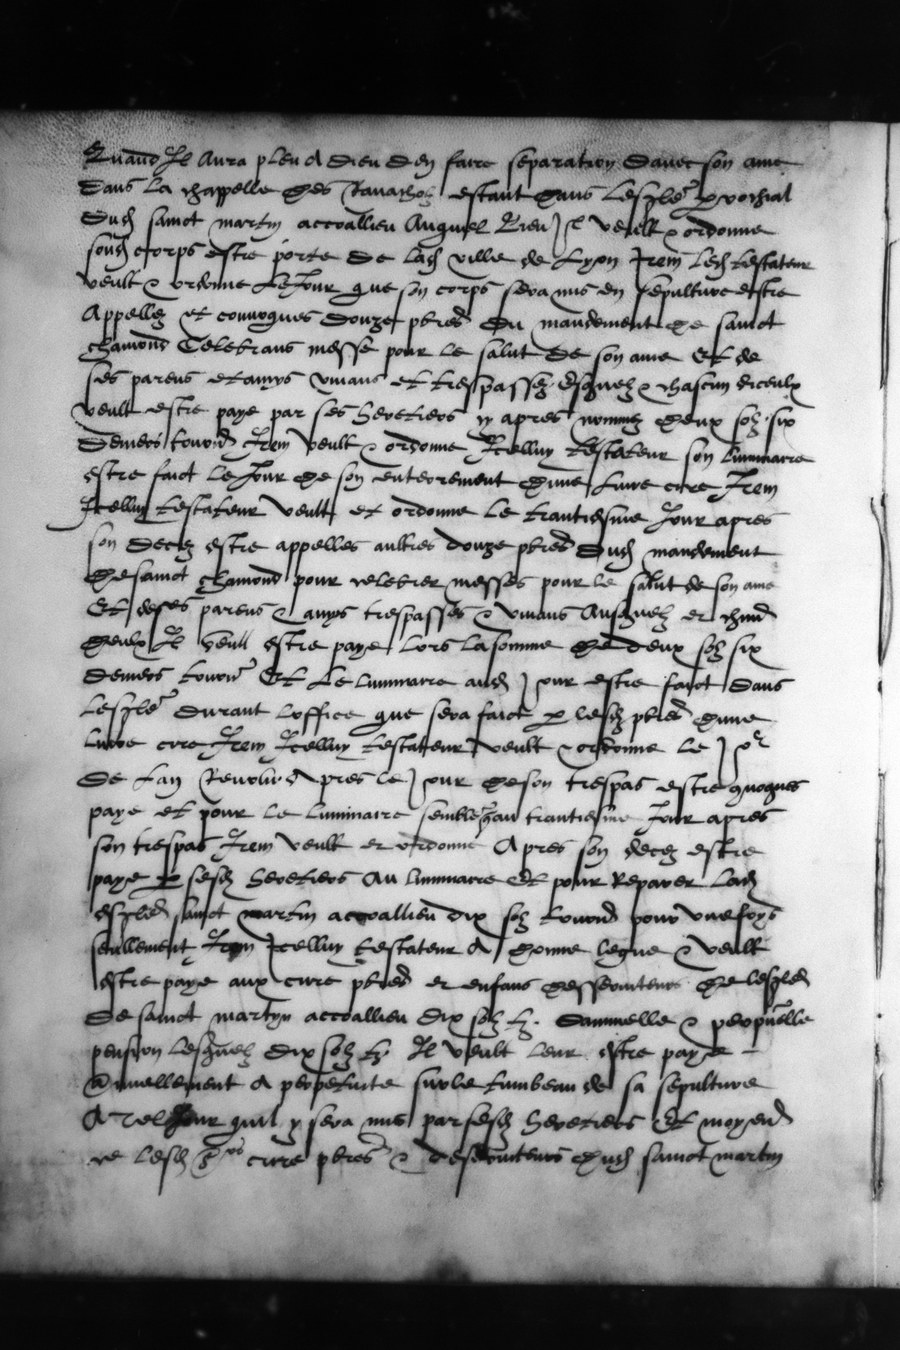 Quand Il Aura pleu A dieu d en faire separation davec son ame
dans la chappelle des Ravachoz estant dans lesglē parrochial
dudᵗ sainct martin accoallieu Auquel lieu Il veult & ordonne
sondᵗ corps estre porte de ladᵗ ville de Lyon Item ledᵗ testateur
veult & ordonne le Jour que son corps sera mis en sepulture estre
Appellez et convoques douze pbrēs du mandement de sainct
chamond Celebrans messe pour le salut de son ame Et de
ses parens et amys vivans et trespassez desquelz & chascun diceulx
veult estre paye par ses heretiers cy apres nommez deux solz six
deniers tournō Item veult & ordonne Icelluy testateur son luminaire
estre faict le Jour de son enterrement dune livre cire Item
Icelluy testateur veult et ordonne le trantiesme Jour apres
son decez estre appelles aultres douze pbrēs dudᵗ mandement
de sainct chamond pour celebrer messes pour le salut de son ame
Et de ses parens & amys trespasses & vivans Ausquelz et chūn
deulx Il veult estre paye lors la somme de deux solz six
deniers tournō Et le luminaire audᵗ Jour estre faict dans
lesglē durant loffice que sera faict par lesdᵗ pbrēs dune
livre cire Item Icelluy testateur veult & ordonne le Joʳ
de lan Revolu Apres le Jour de son trespas estre quoques
paye et pour le luminaire semble quau trantiesme Jour apres
son trespas Item veult et ordonne Apres son decez estre
paye par sesdᵗ heretiers Au luminaire Et pour Reparer ladᵗ
esglē sainct martin accoallieu dix solz tournō pour une foys
seullement Item Icelluy testateur A donne legue & veult
estre paye aux cure pbrēs et enfans desserviteurs de lesglē
de sainct martyn accoallieu dix solz tz. dannuelle & perpuelle
pension lesquelz dix solz tz Il veult leur estre paye
Annuellement A perpetuite sur le tumbeau de sa sepulture
A tel Jour quil y sera mis par sesdᵗ heretiers Et moyend
ce lesdᵗ srs cure pbrēs & desserviteurs dudᵗ sainct martin